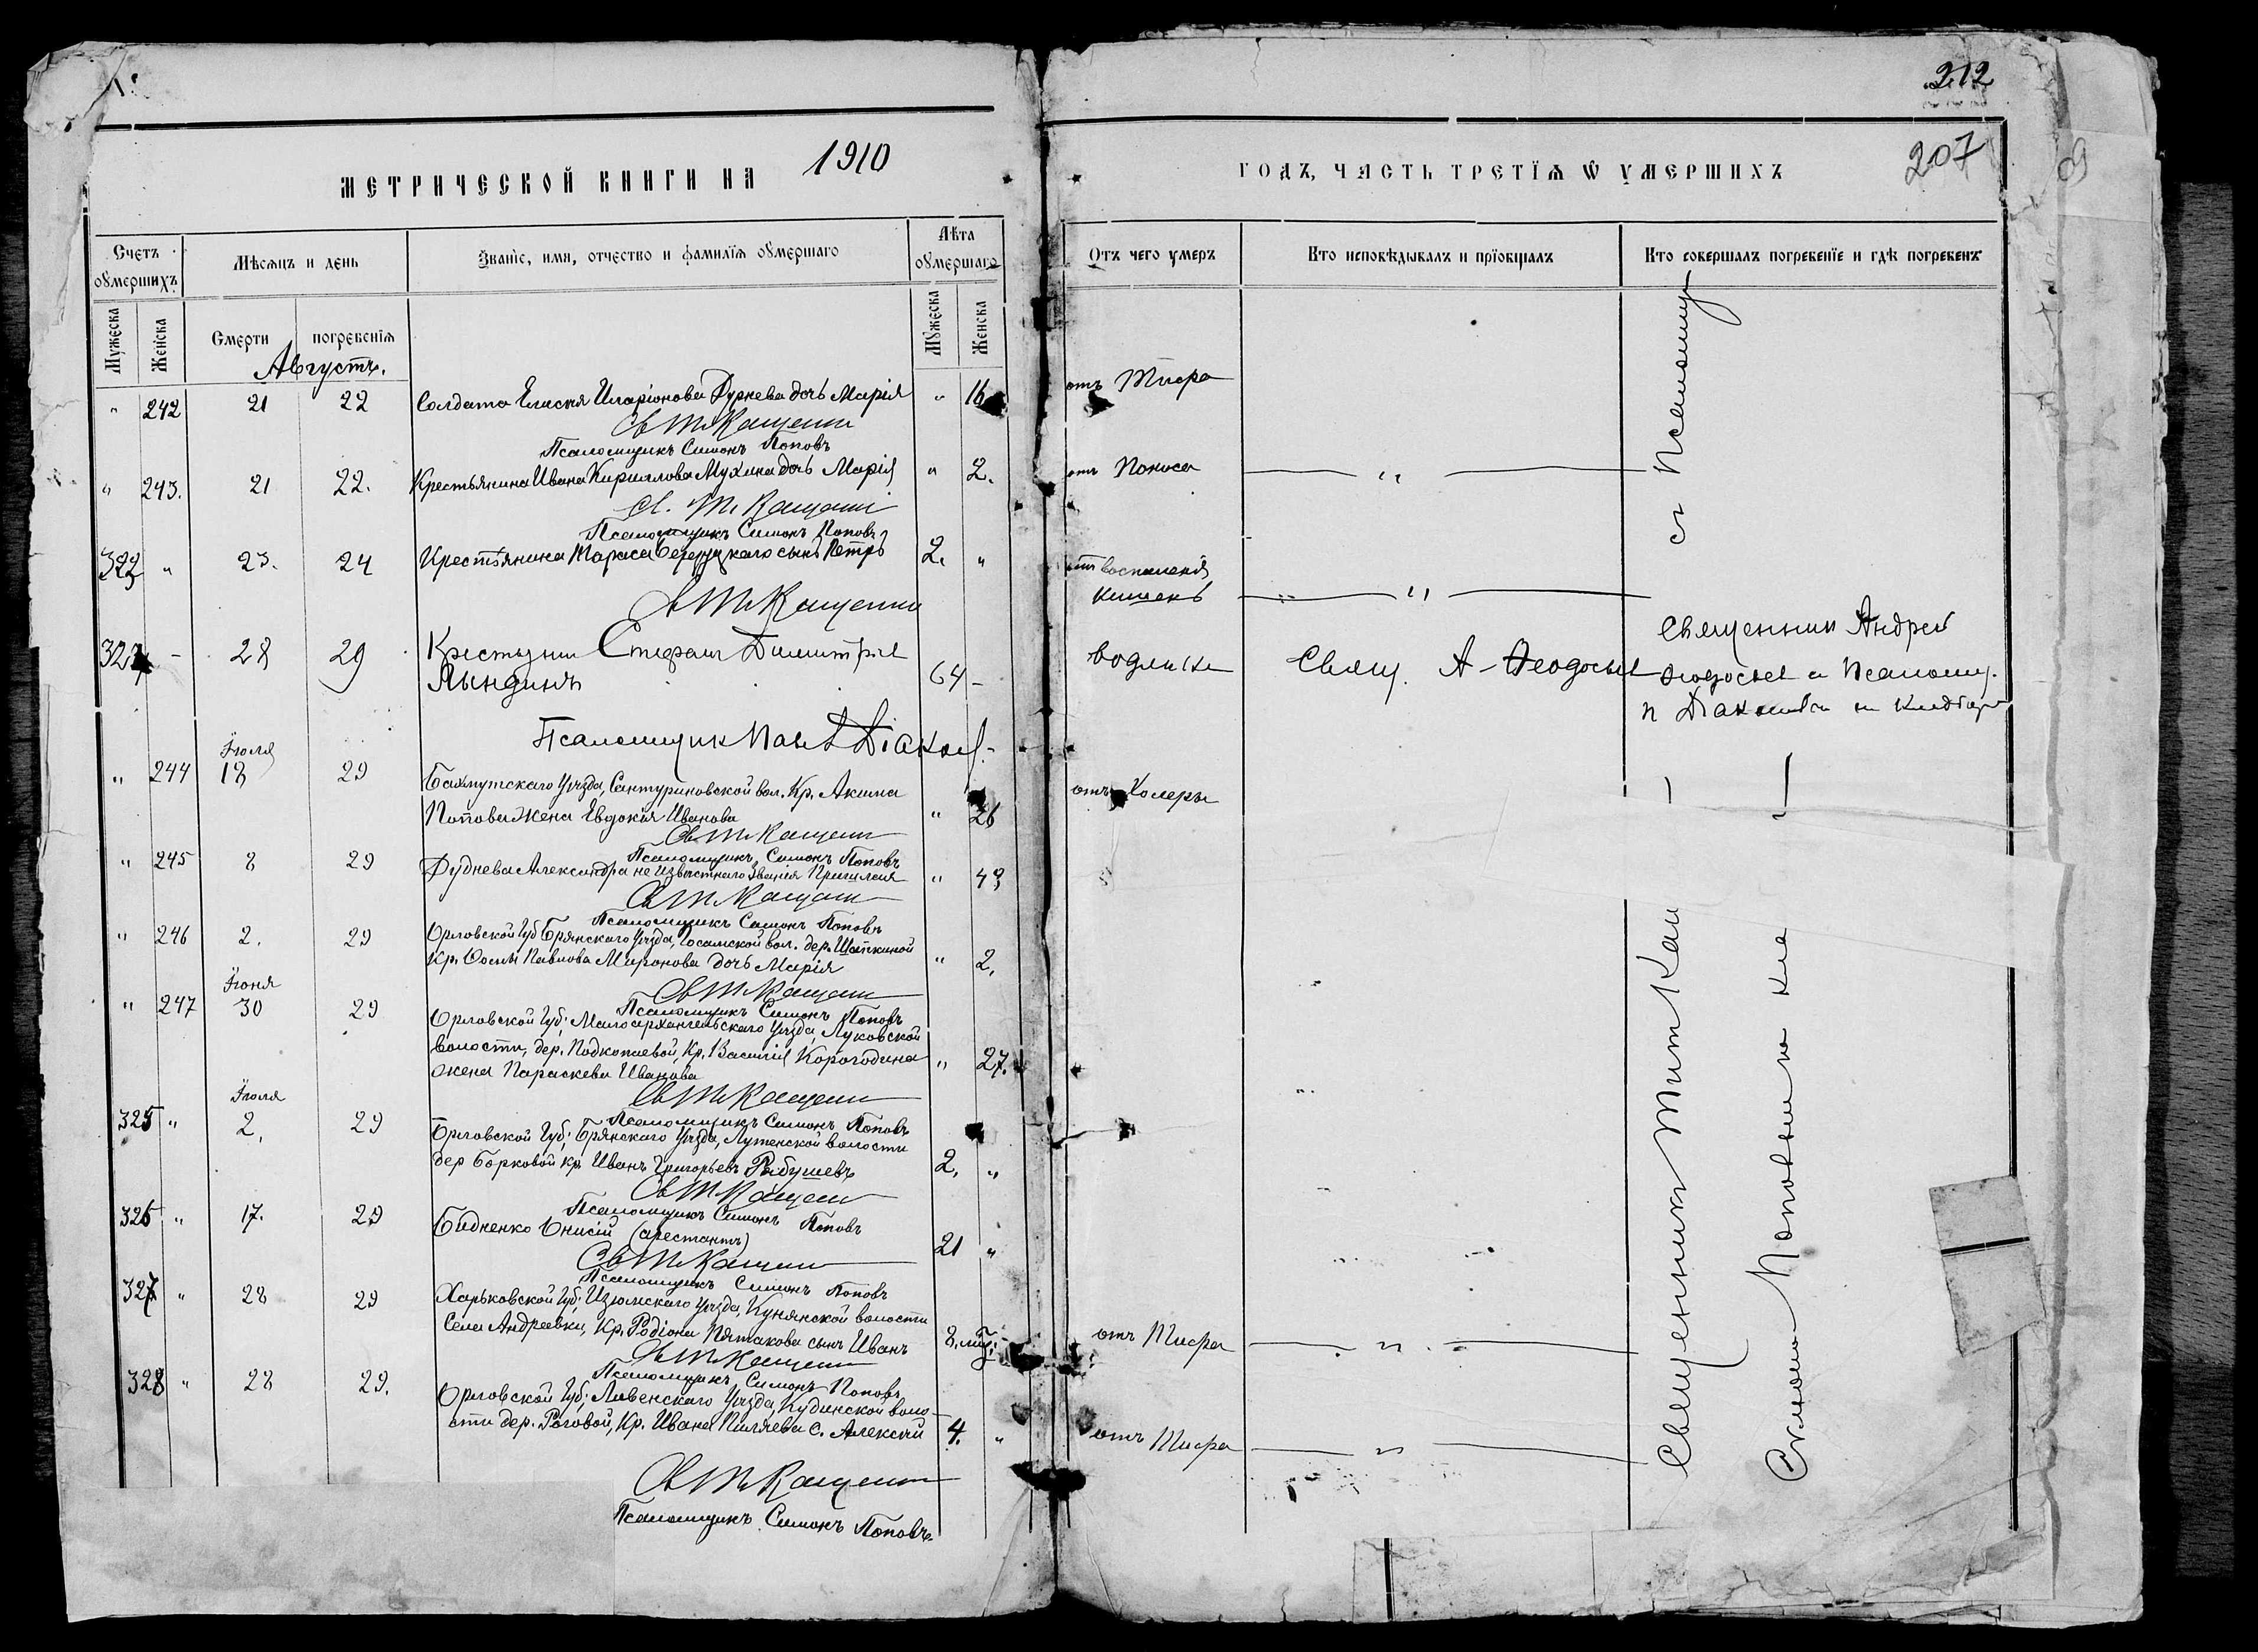 212
207
МЕТРИЧЕСКОЙ КНИГИ НА 1910
ГОДЪ, ЧАСТЬ ТРЕТЇѦ Ѡ УМЕРШИХЪ
Счетъ оумершихъ
Мѣсяцъ и день
Званіе, имя, отчество и фамилїѧ оумершаго
Лѣта оумершаго
Отъ чего умеръ
Кто исповѣдывалъ и прїобщалъ
Кто совершалъ погребенїе и гдѣ погребенъ
Мужеска
Женска
Смерти
погребенїѧ
Мужеска
Женска
Августъ.
" 242 21 22 Солдата Елисея Иларіонова Дурнева дочь Марія " 16 отъ Тифа
Св Т Кащенко
Псаломщикъ Симонъ Поповъ
" 243. 21 22. Крестьянина Ивана Кириллова Мухина дочь Марія " 2. отъ Поноса "
Св. Т. Кащенко
Псаломщикъ Симонъ Поповъ
322 " 23. 24 Крестьянина Тараса сынъ Петръ 2. " отъ воспаленія
кишекъ "
Св Т Кащенко
- 28 29 Крестьянин Стефан Димитріев
Лындинъ 64 - водянки Свящ. А Феодосьев
Священник Андрей
Феодосьев и Псаломщ.
П Діаконов на кладбищ
Псаломщик Павел Діаконов
Іюля
" 244 18 29 Бахмутскаго Уѣзда, Сантуриновской вол. Кр. Акима
Попова жена Евдокія Иванова " 26 отъ Холеры
Св Т Кащенко
Псаломщикъ Симонъ Поповъ
" 245 8 29 Руднева Александра не извѣстнаго Званія " 43
Св Т Кащенко
Псаломщикъ Симонъ Поповъ
" 246 2. 29 Орловской Губ Брянскаго Уѣзда, вол. дер. Щапкиной
Кр. Ѳомы Павлова Миронова дочь Марія " 2.
Св Т Кащенко
Псаломщикъ Симонъ Поповъ
Іюня
" 247 30 29 Орловской Губ; Малоархангельскаго Уѣзда Луковской
волости, дер. Подкопаевой, Кр. Василія Корогодина
жена Параскева Иванова " 27.
Св Т Кащенко
Псаломщикъ Симонъ Поповъ
Іюля
325 " 2. 29 Орловской Губ; Брянскаго Уѣзда, Лутенской волости
дер Борковой кр. Иванъ Григорьевъ Рябушевъ 2. "
Св Т Кащенко
Псаломщикъ Симонъ Поповъ
326 " 17. 29 Бидненко Онисій (арестантъ) 21 "
Св Т Кащенко
Псаломщикъ Симонъ Поповъ
327 " 28 29 Харьковской Губ; Изюмскаго Уѣзда, Кунянской волости
Села Андреевки, Кр. Родіона Пятакова сынъ Иванъ 8. мѣс. отъ Тифа "
Св Т Кащенко
Псаломщикъ Симонъ Поповъ
328 " 28 29. Орловской Губ; Ливенскаго Уѣзда, Кудинской воло-
сти дер. Роговой, Кр. Ивана Пиляева с. Алексѣй 4. " отъ Тифа "
Св Т Кащенко
Псаломщикъ Симонъ Поповъ
Священникъ Тит Кащ
съ Псаломщ
Симоном Поповым на кла